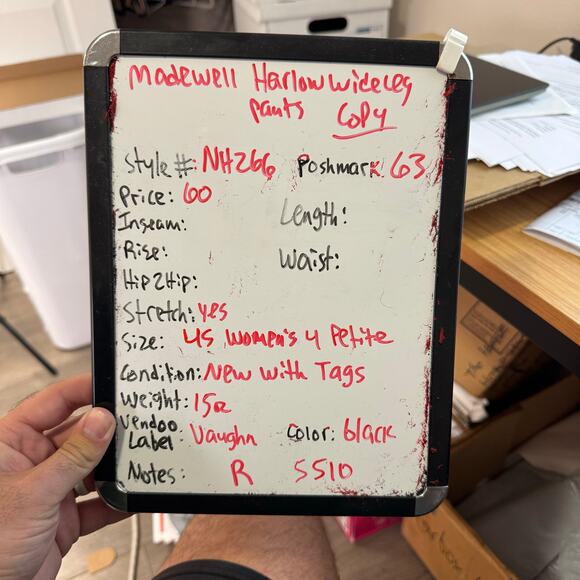 Madewell Harlow wide leg
pants Copy
Style #: NH266 Poshmark 63
Price: 60
Inseam: Length:
Rise: Waist:
Hip2Hip:
Stretch: yes
Size: 4S Women's 4 Petite
Condition: New with Tags
Weight: 15oz
Vendoo
Label: Vaughn Color: black
Notes: R 5510